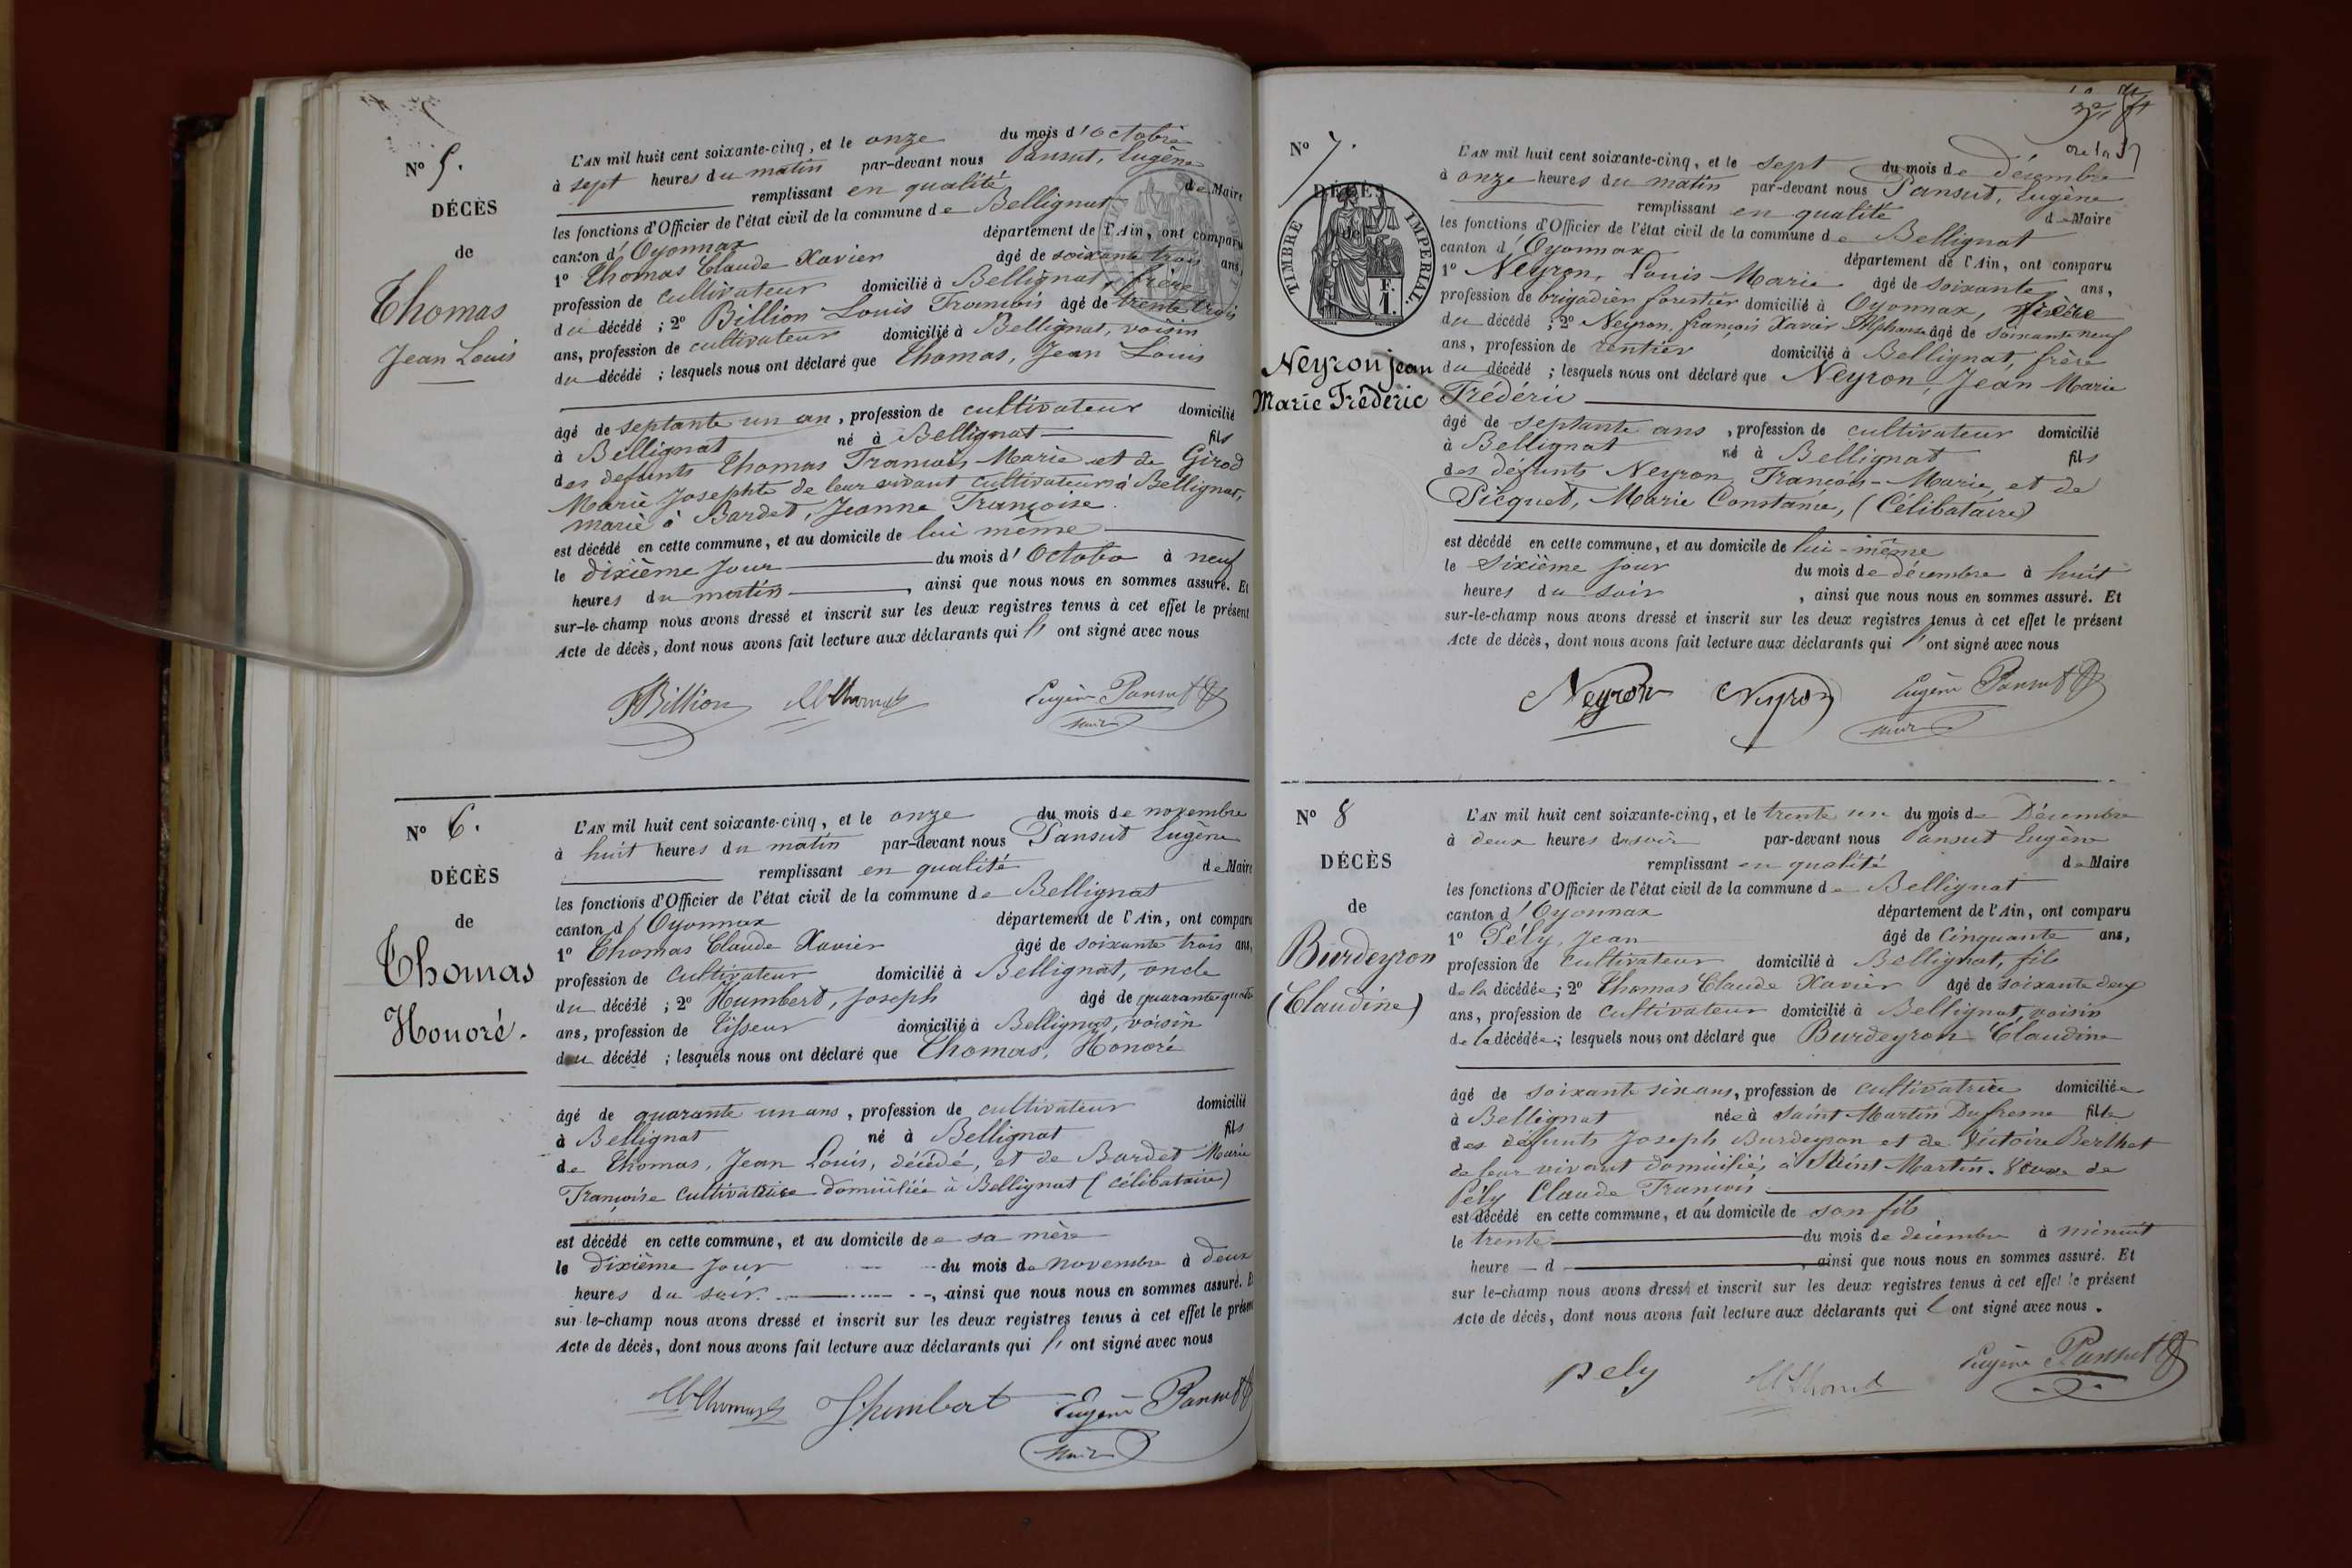 N° 5.
DÉCÈS
de
Thomas
Jean Louis
L'AN mil huit cent soixante-cinq, et le onze du mois d'Octobre
à sept heures du matin par-devant nous Pansut, Eugène
remplissant en qualité de Maire
les fonctions d'Officier de l'état civil de la commune de Bellignat
canton d'Oyonnax département de l'Ain, ont comparu
1° Thomas Claude Xavier âgé de soixante trois ans,
profession de cultivateur domicilié à Bellignat, frère
du décédé ; 2° Billion Louis François âgé de trente trois
ans, profession de cultivateur domicilié à Bellignat, voisin
du décédé ; lesquels nous ont déclaré que Thomas, Jean Louis
âgé de septante un an, profession de cultivateur domicilié
à Bellignat né à Bellignat fils
des défunts Thomas François Marie et de Girod
Marie Josephte de leur vivant cultivateurs à Bellignat,
marié à Bardet, Jeanne Françoise.
est décédé en cette commune, et au domicile de lui même
le dixième jour du mois d'Octobre à neuf
heures du matin, ainsi que nous nous en sommes assuré. Et
sur-le-champ nous avons dressé et inscrit sur les deux registres tenus à cet effet le présent
Acte de décès, dont nous avons fait lecture aux déclarants qui l' ont signé avec nous
FBillion Cl Thomas Eugène Pansut
maire
N° 6.
DÉCÈS
de
Thomas
Honoré.
L'AN mil huit cent soixante-cinq, et le onze du mois de novembre
à huit heures du matin par-devant nous Pansut Eugène
remplissant en qualité de Maire
les fonctions d'Officier de l'état civil de la commune de Bellignat
canton d'Oyonnax département de l'Ain, ont comparu
1° Thomas Claude Xavier âgé de soixante trois ans,
profession de cultivateur domicilié à Bellignat, oncle
du décédé ; 2° Humbert, Joseph âgé de quarante quatre
ans, profession de Tisseur domicilié à Bellignat, voisin
du décédé ; lesquels nous ont déclaré que Thomas, Honoré
âgé de quarante un ans, profession de cultivateur domicilié
à Bellignat né à Bellignat fils
de Thomas, Jean Louis, décédé, et de Bardet Marie
Françoise cultivatrice domiciliée à Bellignat (célibataire)
est décédé en cette commune, et au domicile de sa mère
le dixième jour du mois de novembre à deux
heures du soir, ainsi que nous nous en sommes assuré. Et
sur-le-champ nous avons dressé et inscrit sur les deux registres tenus à cet effet le présent
Acte de décès, dont nous avons fait lecture aux déclarants qui l' ont signé avec nous
Cl Thomas J humbert Eugène Pansut
maire
N° 7.
DÉCÈS
de
TIMBRE IMPERIAL
1 F.
Neyron Jean
Marie Frédéric
L'AN mil huit cent soixante-cinq, et le sept du mois de décembre
à onze heures du matin par-devant nous Pansut, Eugène
remplissant en qualité de Maire
les fonctions d'Officier de l'état civil de la commune de Bellignat
canton d'Oyonnax département de l'Ain, ont comparu
1° Neyron, Louis Marie âgé de soixante ans,
profession de brigadier forestier domicilié à Oyonnax, frère
du décédé ; 2° Neyron, françois Xavier Alphonse âgé de soixante neuf
ans, profession de rentier domicilié à Bellignat, frère
du décédé ; lesquels nous ont déclaré que Neyron, Jean Marie
Frédéric
âgé de septante ans, profession de cultivateur domicilié
à Bellignat né à Bellignat fils
des défunts Neyron, François-Marie, et de
Picquet, Marie Constance, (Célibataire)
est décédé en cette commune, et au domicile de lui-même
le sixième jour du mois de décembre à huit
heures du soir, ainsi que nous nous en sommes assuré. Et
sur-le-champ nous avons dressé et inscrit sur les deux registres tenus à cet effet le présent
Acte de décès, dont nous avons fait lecture aux déclarants qui l' ont signé avec nous
Neyron Neyron Eugène Pansut
maire
N° 8
DÉCÈS
de
Burdeyron
(Claudine)
L'AN mil huit cent soixante-cinq, et le trente un du mois de Décembre
à deux heures du soir par-devant nous Pansut Eugène
remplissant en qualité de Maire
les fonctions d'Officier de l'état civil de la commune de Bellignat
canton d'Oyonnax département de l'Ain, ont comparu
1° Pély, Jean âgé de cinquante ans,
profession de cultivateur domicilié à Bellignat, fils
de la décédée ; 2° Thomas Claude Xavier âgé de soixante deux
ans, profession de cultivateur domicilié à Bellignat, voisin
de la décédée ; lesquels nous ont déclaré que Burdeyron Claudine
âgé de soixante six ans, profession de cultivatrice domiciliée
à Bellignat née à Saint Martin Dufresne fille
des défunts Joseph Burdeyron et de Victoire Berthet
de leur vivant domiciliés à Saint Martin. Veuve de
Pély Claude François
est décédé en cette commune, et au domicile de son fils
le trente du mois de décembre à minuit
heure d, ainsi que nous nous en sommes assuré. Et
sur le-champ nous avons dressé et inscrit sur les deux registres tenus à cet effet le présent
Acte de décès, dont nous avons fait lecture aux déclarants qui l' ont signé avec nous.
Pely Cl Thomas Eugène Pansut